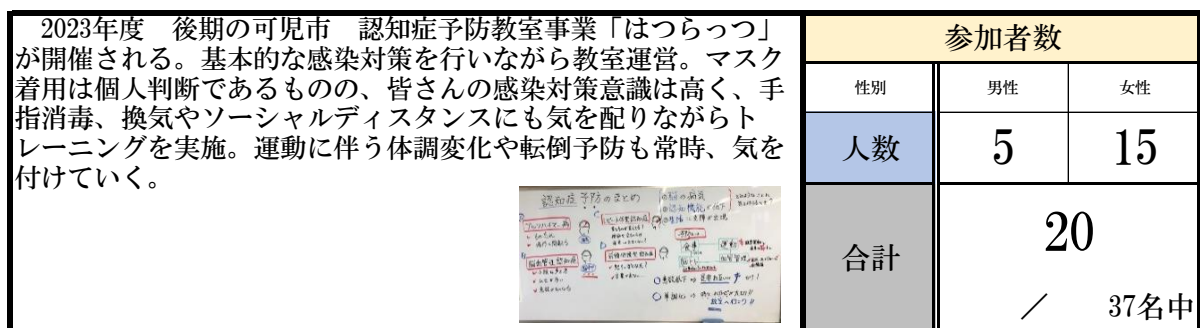 2023年度　後期の可児市　認知症予防教室事業「はつらっつ」
が開催される。基本的な感染対策を行いながら教室運営。マスク
着用は個人判断であるものの、皆さんの感染対策意識は高く、手
指消毒、換気やソーシャルディスタンスにも気を配りながらト
レーニングを実施。運動に伴う体調変化や転倒予防も常時、気を
付けていく。
認知症予防のまとめ
参加者数
性別 男性 女性
人数 5 15
合計 20
／ 37名中